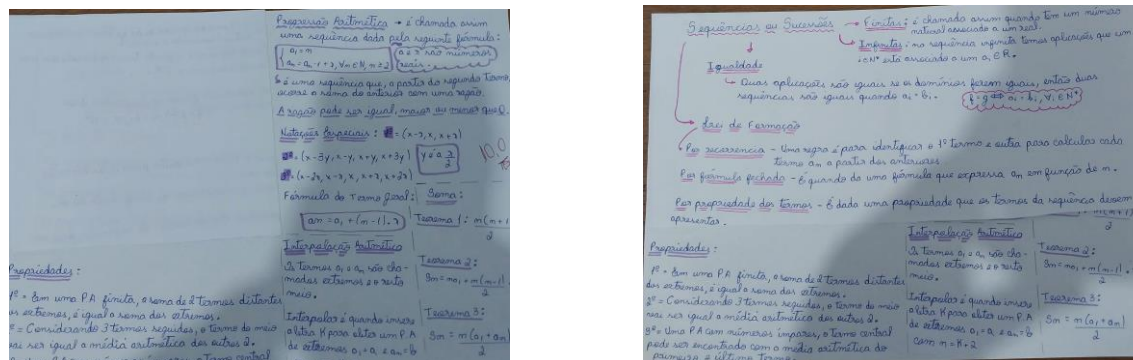 Progressão Aritmética → é chamada assim
uma sequência dada pela seguinte fórmula:
a₁ = m
aₙ = aₙ₋₁ + r, ∀n ∈ N, n ≥ 2
a e r são números
reais.
é uma sequência que, a partir do segundo termo,
ocorre a soma do anterior com uma razão.
A razão pode ser igual, maior ou menor que 0.
Notações Especiais: = (x-r, x, x+r)
= (x-3y, x-y, x+y, x+3y)
y é a r/2
= (x-2r, x-r, x, x+r, x+2r)
10,0
Fórmula do Termo Geral:
an = a₁ + (n-1).r
Soma:
Teorema 1: n(n+1
2
Interpolação Aritmética
Os termos a₁ e aₙ são cha-
mados extremos e o resto
meio.
Interpolar é quando insere
a letra K para obter um P.A
de extremos a₁ = a e an = b
Teorema 2:
Sn = na₁ + n(n-1).
2
Teorema 3:
Sn = n(a₁ + an)
2
Propriedades:
1º = Em uma PA finita, a soma de 2 termos distantes
dos extremos, é igual a soma dos extremos.
2º = Considerando 3 termos seguidos, o termo do meio
vai ser igual a média aritmética dos outros 2.
Sequências ou Sucessões
Finitas: é chamada assim quando tem um número
natural associado a um real.
Infinitas: na sequência infinita temos aplicações que um
i ∈ N* está associado a um aᵢ ∈ R.
Igualdade
Duas aplicações são iguais se os domínios forem iguais, então duas
sequências são iguais quando aᵢ = bᵢ.
f = g ⇔ aᵢ = bᵢ, ∀i ∈ N*
Lei de Formação
Por recorrencia - Uma regra é para identificar o 1º termo e outra para calcular cada
termo an a partir dos anteriores.
Por fórmula fechada - É quando da uma fórmula que expressa an em função de n.
Por propriedade dos termos - É dada uma propriedade que os termos da sequência devem
apresentar.
Propriedades:
1º = Em uma PA finita, a soma de 2 termos distantes
dos extremos, é igual a soma dos extremos.
2º = Considerando 3 termos seguidos, o termo do meio
vai ser igual a média aritmética dos outros 2.
3º = Uma PA com números impares, o termo central
pode ser encontrado com a média aritmética do
primeiro e último termo.
Interpolação Aritmética
Os termos a₁ e an são cha-
mados extremos e o resto
meio.
Interpolar é quando insere
a letra K para obter um P.A
de extremos a₁ = a e an = b
com n = K + 2
2
Teorema 2:
Sn = na₁ + n(n-1).
2
Teorema 3:
Sn = n(a₁ + an)
2